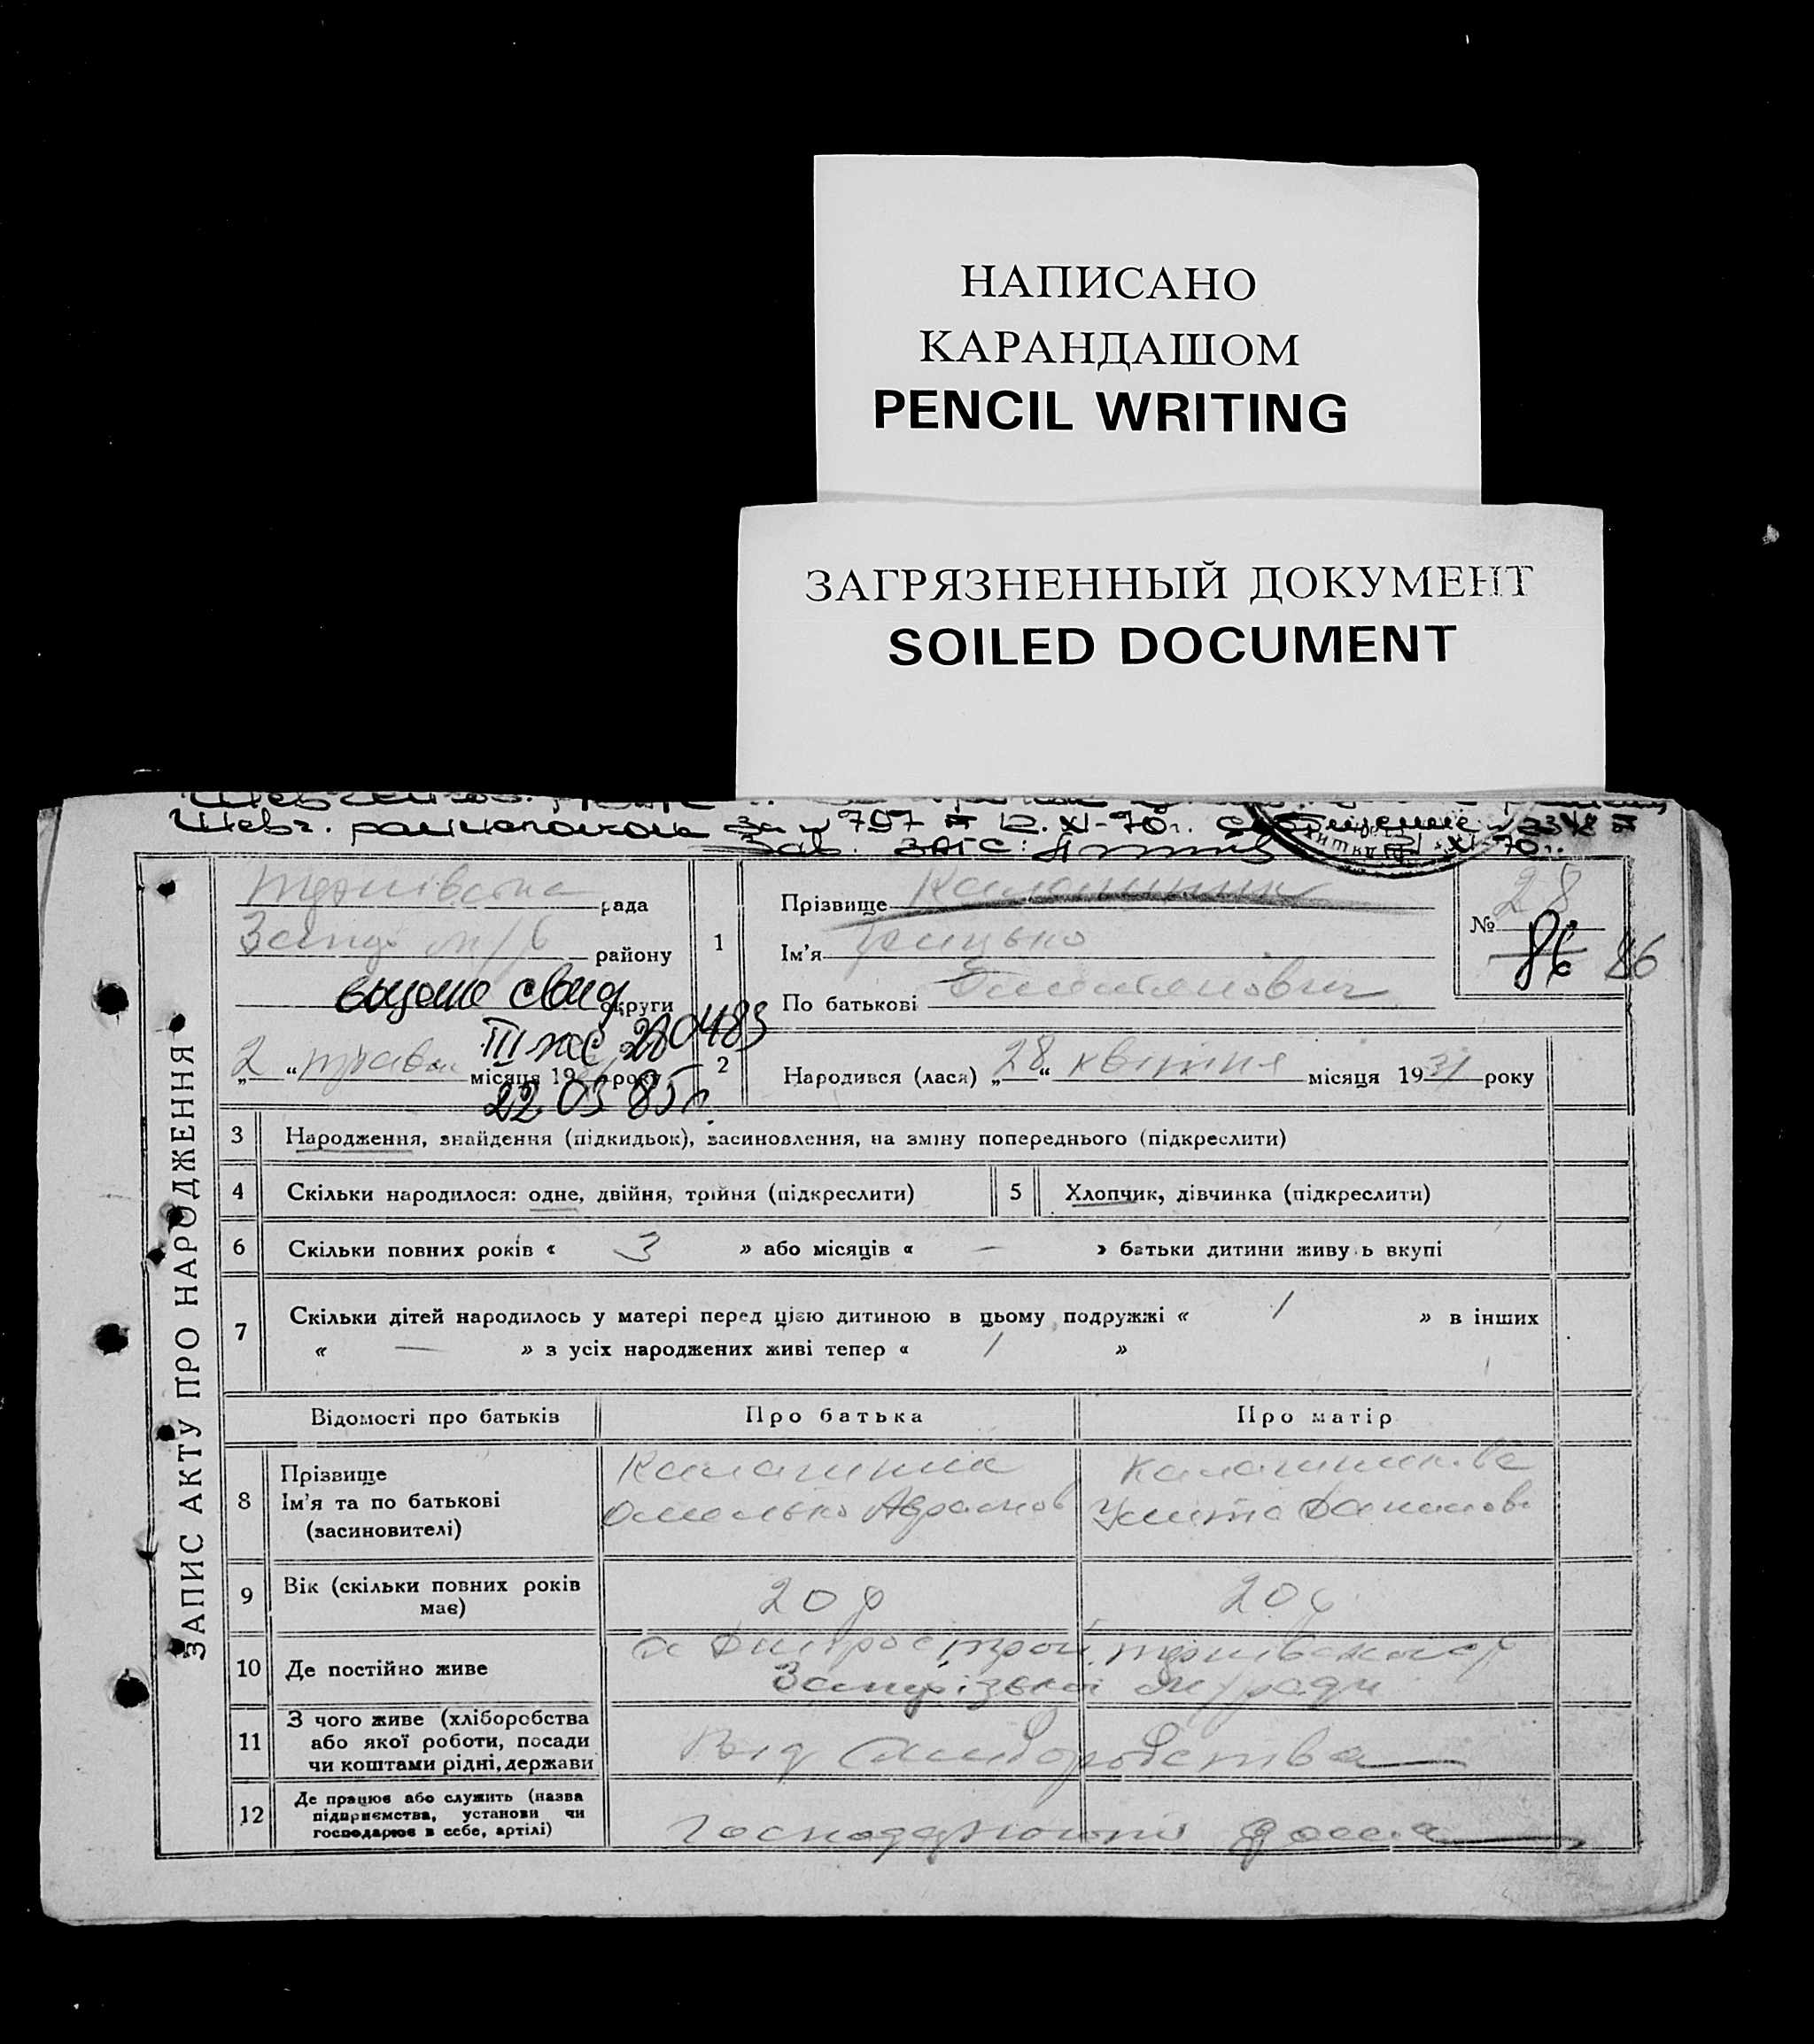 НАПИСАНО
КАРАНДАШОМ
PENCIL WRITING
ЗАГРЯЗНЕННЫЙ ДОКУМЕНТ
SOILED DOCUMENT
за № 757 12.XI-70г.
Зав. ЗАГС: XI 70г.
ЗАПИС АКТУ ПРО НАРОДЖЕННЯ
Тернівська рада
району
округи
выдано свид
III 280483
22 03 85г.
„2“ травня місяця 19 року
1
Прізвище Калашник
Ім’я Грицько
По батькові Омелянович
№ 28
86 86
2
Народився (лася) „28“ квітня місяця 1931 року
3 Народження, знайдення (підкидьок), засиновлення, на зміну попереднього (підкреслити)
4 Скільки народилося: одне, двійня, трійня (підкреслити)
5 Хлопчик, дівчинка (підкреслити)
6 Скільки повних років « 3 » або місяців « — » батьки дитини живу ь вкупі
7 Скільки дітей народилось у матері перед цією дитиною в цьому подружжі « 1 » в інших
« — » з усіх народжених живі тепер « 1 »
Відомості про батьків Про батька Про матір
8 Прізвище
Ім’я та по батькові
(засиновителі)
Калашник
Омелько Абрамов
Калашникова
Данилов
9 Вік (скільки повних років
має)
20 р
20 р
10 Де постійно живе
х Дніпрострой Тернівської
Запорізької м/ради
11 З чого живе (хліборобства
або якої роботи, посади
чи коштами рідні, держави
Від хліборобства
12 Де працює або служить (назва
підприємства, установи чи
господарює в себе, артілі)
дома